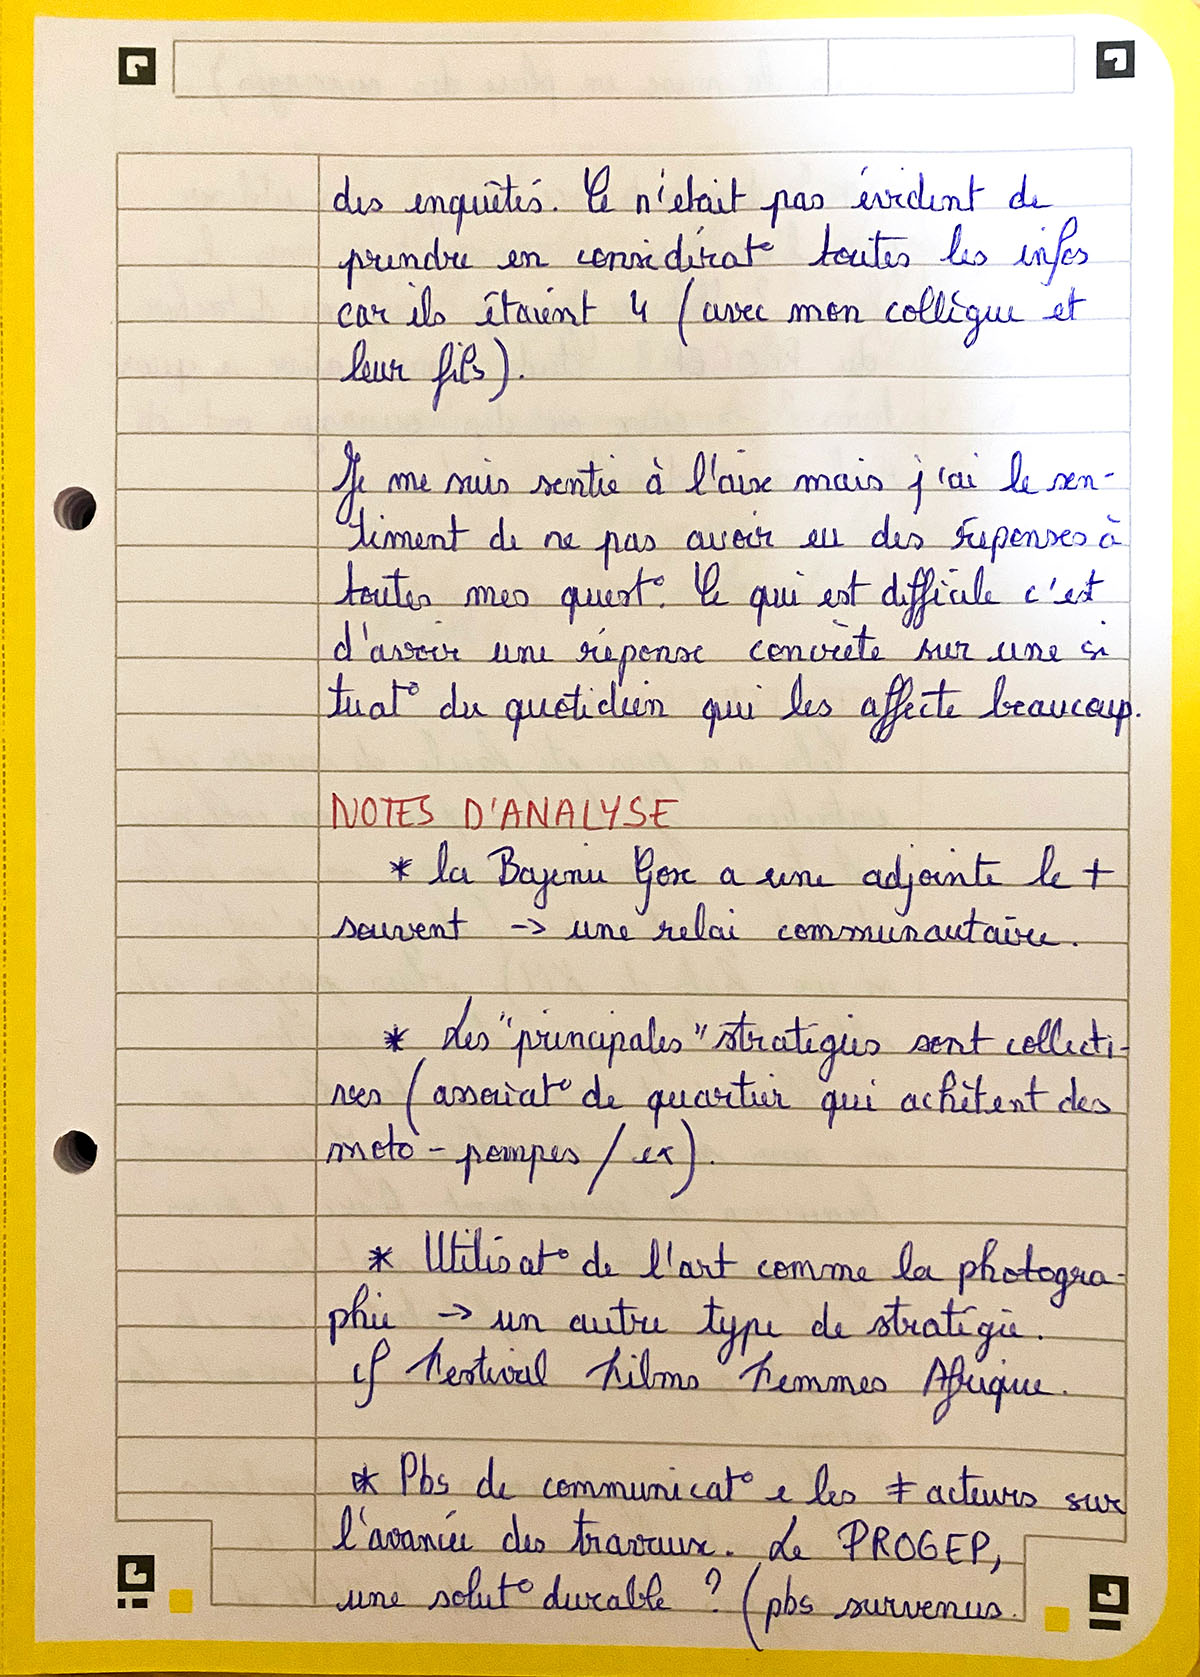 des enquêtés. Ce n'était pas évident de
prendre en considérat° toutes les infos
car ils étaient 4 (avec mon collègue et
leur fils).
Je me suis sentie à l'aise mais j'ai le sen-
timent de ne pas avoir eu des réponses à
toutes mes quest°. Ce qui est difficile c'est
d'avoir une réponse concrète sur une si
tuat° du quotidien qui les affecte beaucoup.
NOTES D'ANALYSE
* la Bajenu Gox a une adjointe le +
souvent -> une relai communautaire.
* Les "principales" stratégies sont collecti-
ves (associat° de quartier qui achètent des
moto-pompes / ex).
* Utilisat° de l'art comme la photogra-
phie -> un autre type de stratégie.
cf Festival Films Femmes Afrique.
* Pbs de communicat° e les ≠ acteurs sur
l'avancée des travaux. Le PROGEP,
une solut° durable ? (pbs survenus.